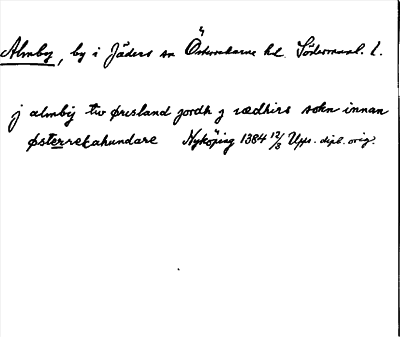 Almby, by i Jäders sn Österrekarne hd. Södermanl. l.
j almbij tiv øresland jordh j rædhirs sokn innan
østerrekahundare Nyköping 1384 12/8 Upps. dipl. orig.